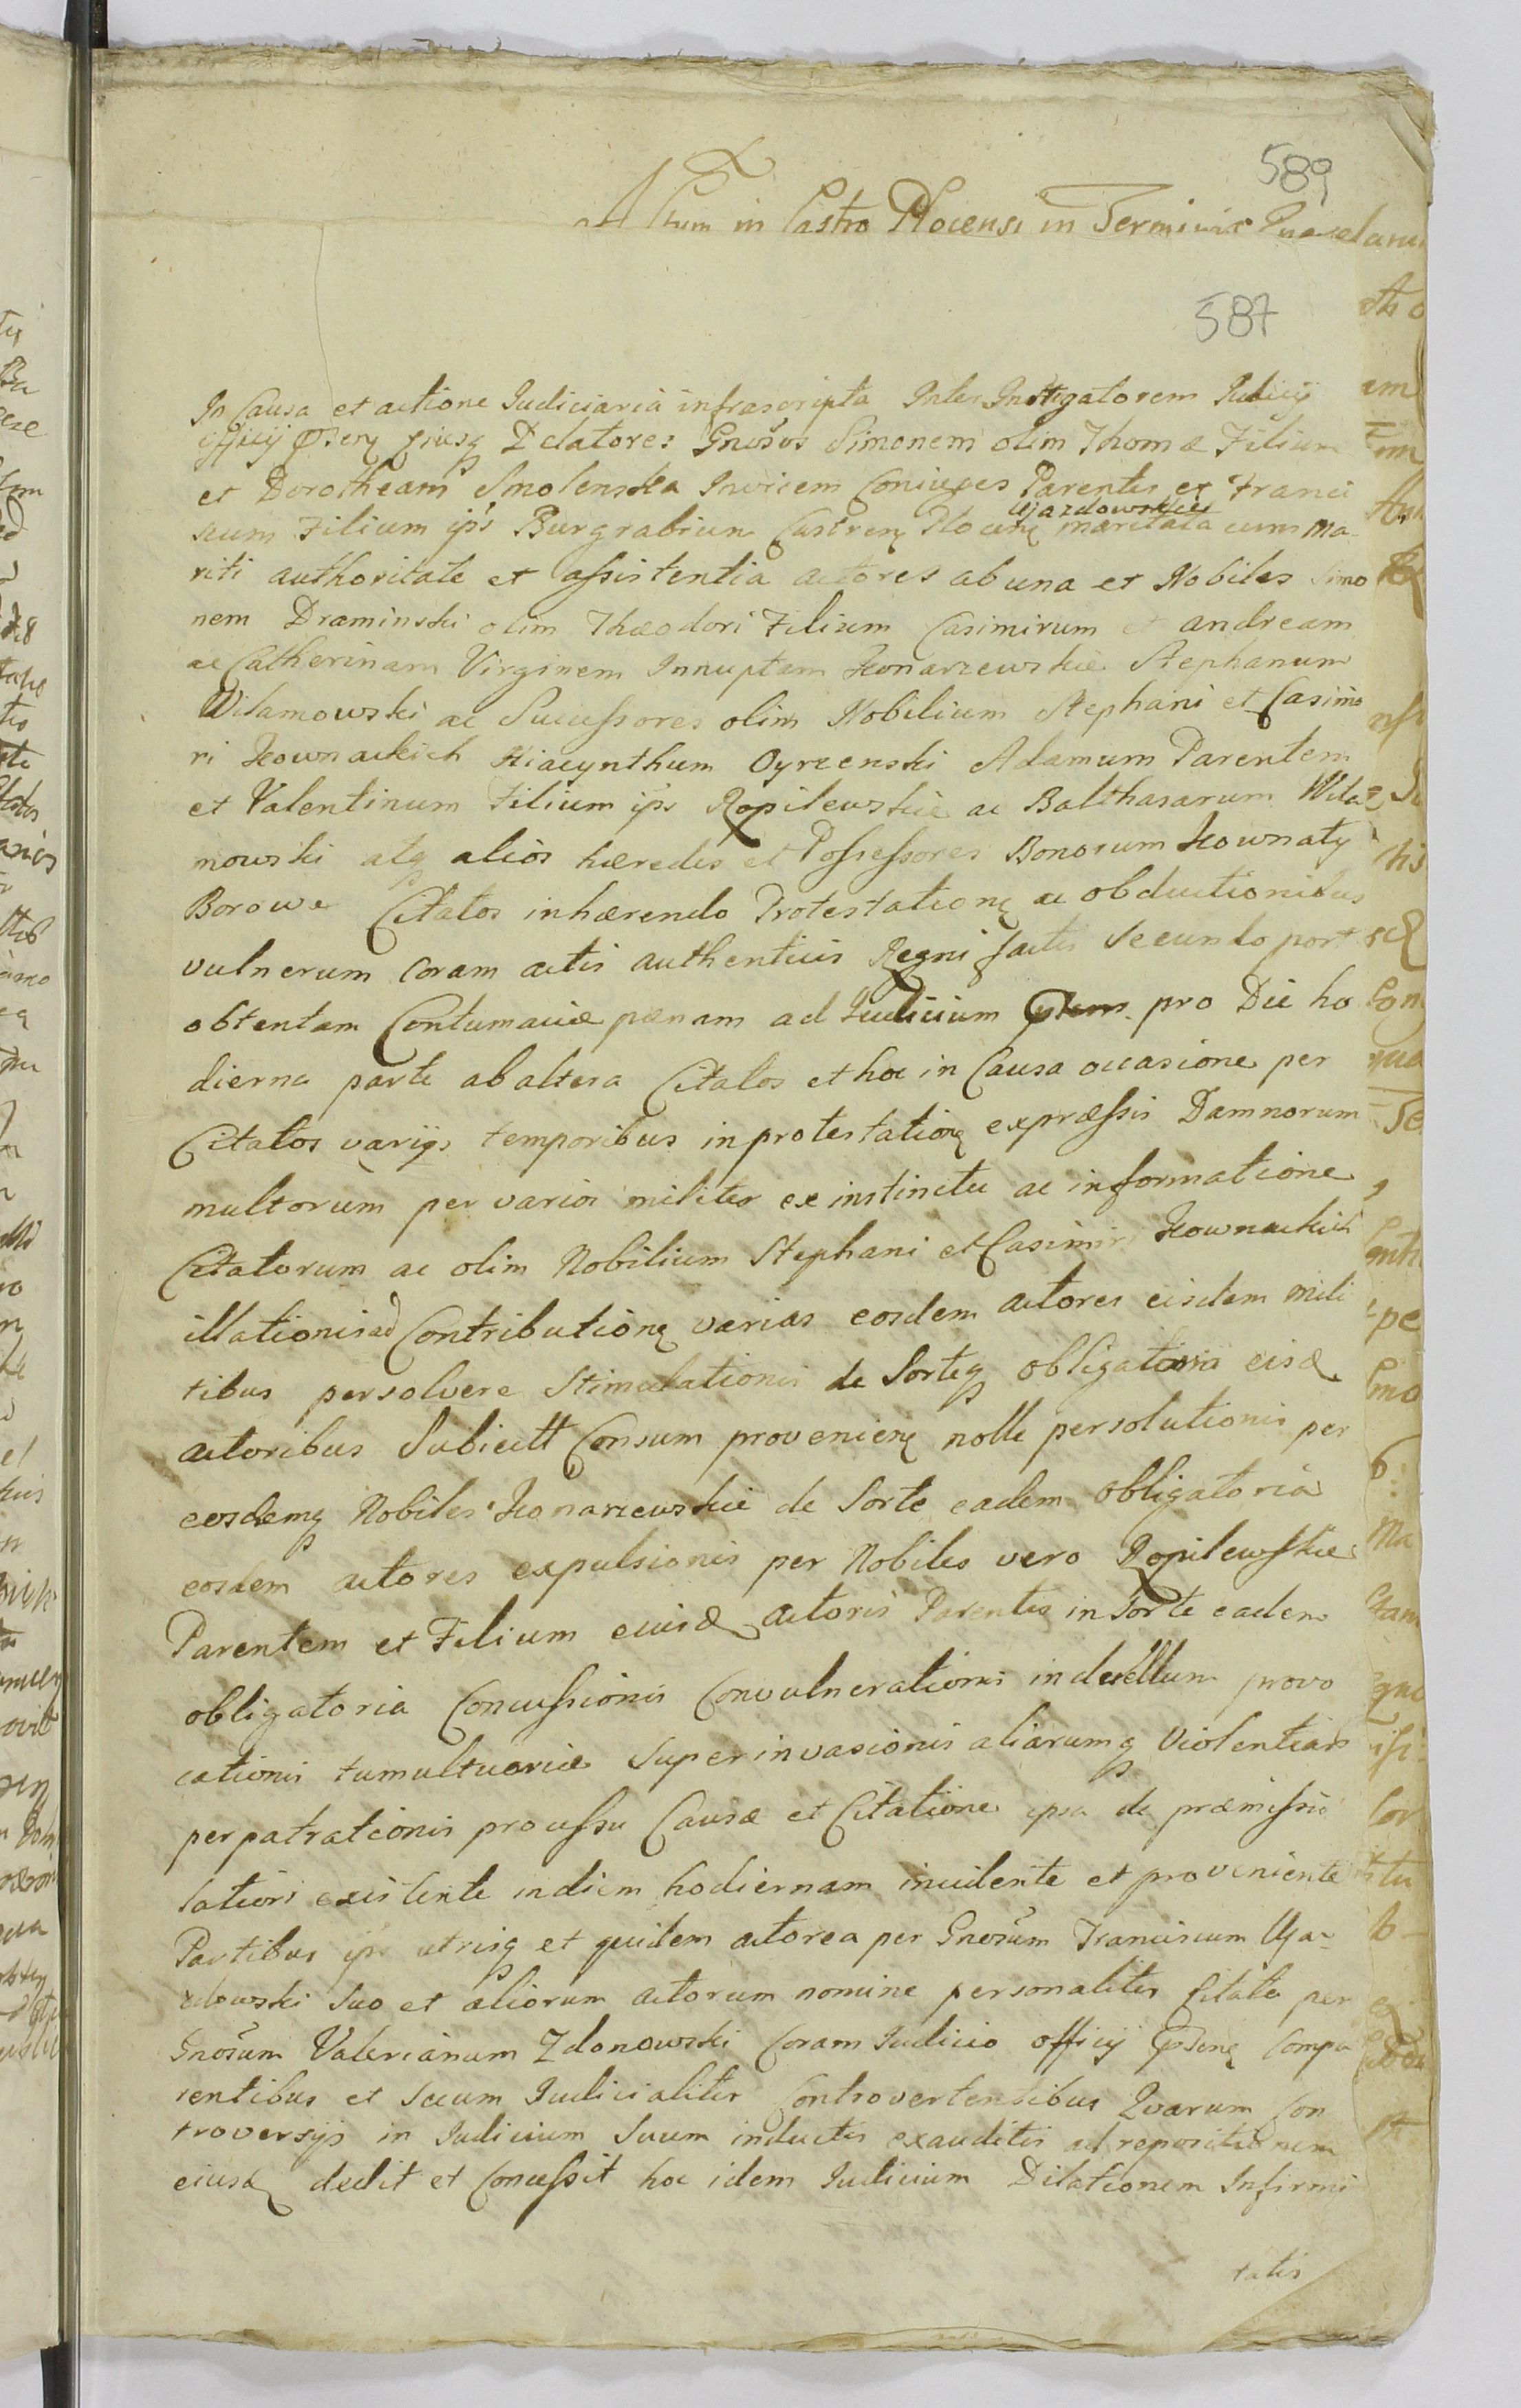 589
Actum in Castro Plocensi in Terminis
587
In Causa et actione Iudiciaria infrascripta Inter Instigatorem Iudicij
officij pñsenę eiusq Delatores Gnosos Simonem olim Thomæ Filium
et Dorotheam Smolenska Invicem Coniuges Parentes et Franci
Ujazdowskie
scum Filium ips Burgrabium Castrenę Plocenę maritata cum ma
riti authoritate et assistentia actores ab una et Nobiles Simo
nem Draminski olim Thæodori Filium Casimirum et andream
ac Catherinam Virginem Innuptam Konarzewskie Stephanum
Wilamowski ac Sucessores olim Nobilium Stephani et Casimi
ri Kownackich Hiacynthum Oyrzenski Adamum Parentem
et Valentinum Filium ips Ropilewskie ac Balthasarum Wila
mowski atq alios hæredes et Possessores Bonorum Kownaty
Borowe Citatos inhærendo Protestationę ac obductionibus
vulnerum coram actis authenticis Regni factis Secundo post
obtentam Contumaciæ pænam ad Iudicium pro Die ho
dierna parte ab altera Citatos et hoc in Causa occasione per
Citatos varijs temporibus in protestationę expræssis Damnorum
multorum per varios milites ex instinctu ac informatione
Citatorum ac olim Nobilium Stephani et Casimiri Kownackich
illationis ad Contributionę varias eosdem actores eisdem mili
tibus persolvere Stimulationis de Sorteq obligatoria eisd
actoribus Subiectt Censum provenienę nolle persolutionis per
eosdemq Nobiles Konarzewskie de Sorte eadem obligatoria
eosdem actores expulsionis per Nobiles vero Ropilewskie
Parentem et Filium eiusd actoris Parentis in Sorte eadem
obligatoria Concussionis Convulnerationis in duellum provo
cationis tumultuariæ Superinvasionis aliarumq Violentiars
perpatrationis processu Causæ et Citatione ipsa de præmissis
latiori existente in diem hodiernam incidente et proveniente
Partibus ips utrisq et quidem actorea per Gnosum Franciscum Uja-
zdowski Suo et aliorum actorum nomine personaliter Citata per
Gnosum Valerianum Zdonowski Coram Iudicio officij pñsenę Compa
rentibus et Secum Iudicialiter Controvertentibus Quarum Con
troversijs in Iudicium Suum inductis exauditis ad repositionem
eiusd dedit et Concessit hoc idem Iudicium Dilationem Infirmi
tatis